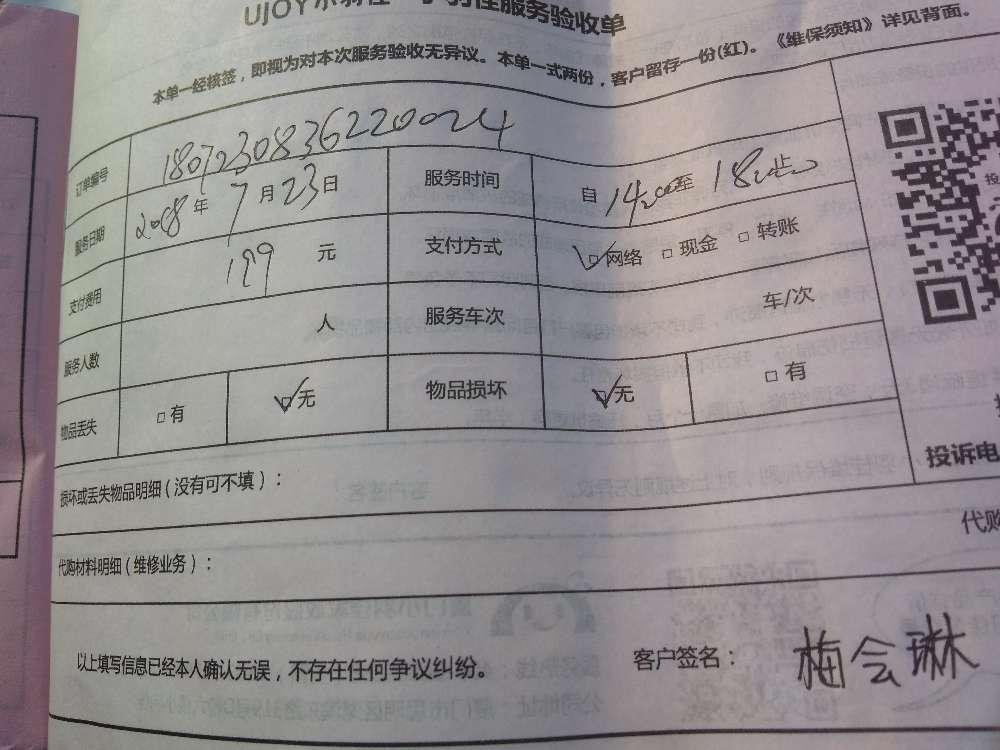 服务验收单
本单一经核签，即视为对本次服务验收无异议。本单一式两份，客户留存一份(红)。《维保须知》详见背面。
订单编号 1807230836220024
服务日期 2018年7月23日 服务时间 自14:00至18:00止
支付费用 199 元 支付方式 网络 □ 现金 □ 转账
服务人数 人 服务车次 车/次
物品丢失 □ 有 无 物品损坏 无 □ 有
投诉电
损坏或丢失物品明细（没有可不填）：
代购
代购材料明细（维修业务）：
以上填写信息已经本人确认无误，不存在任何争议纠纷。 客户签名： 梅会琳